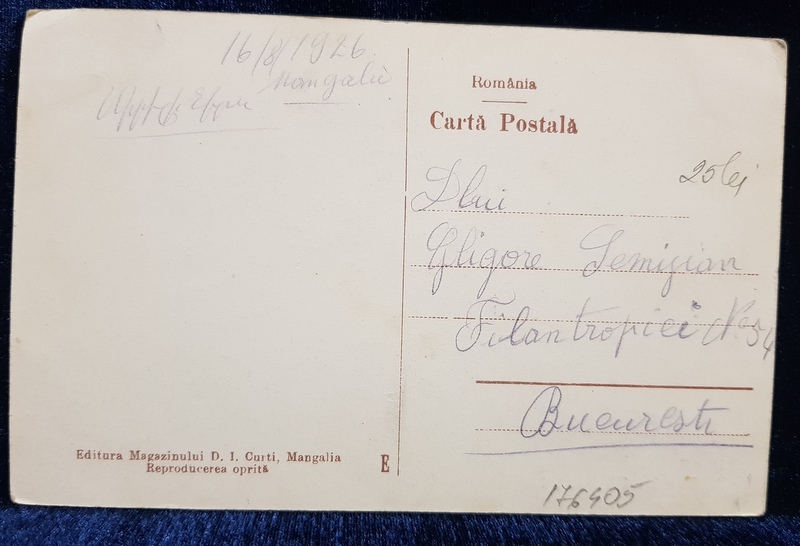 16/8/1926
Mangalia
România
Cartă Postală
25 lei
Dlui
Gligore Semizian
Filantropiei No 54
Bucuresti
Editura Magazinului D. I. Curti, Mangalia
Reproducerea oprită
E
176405